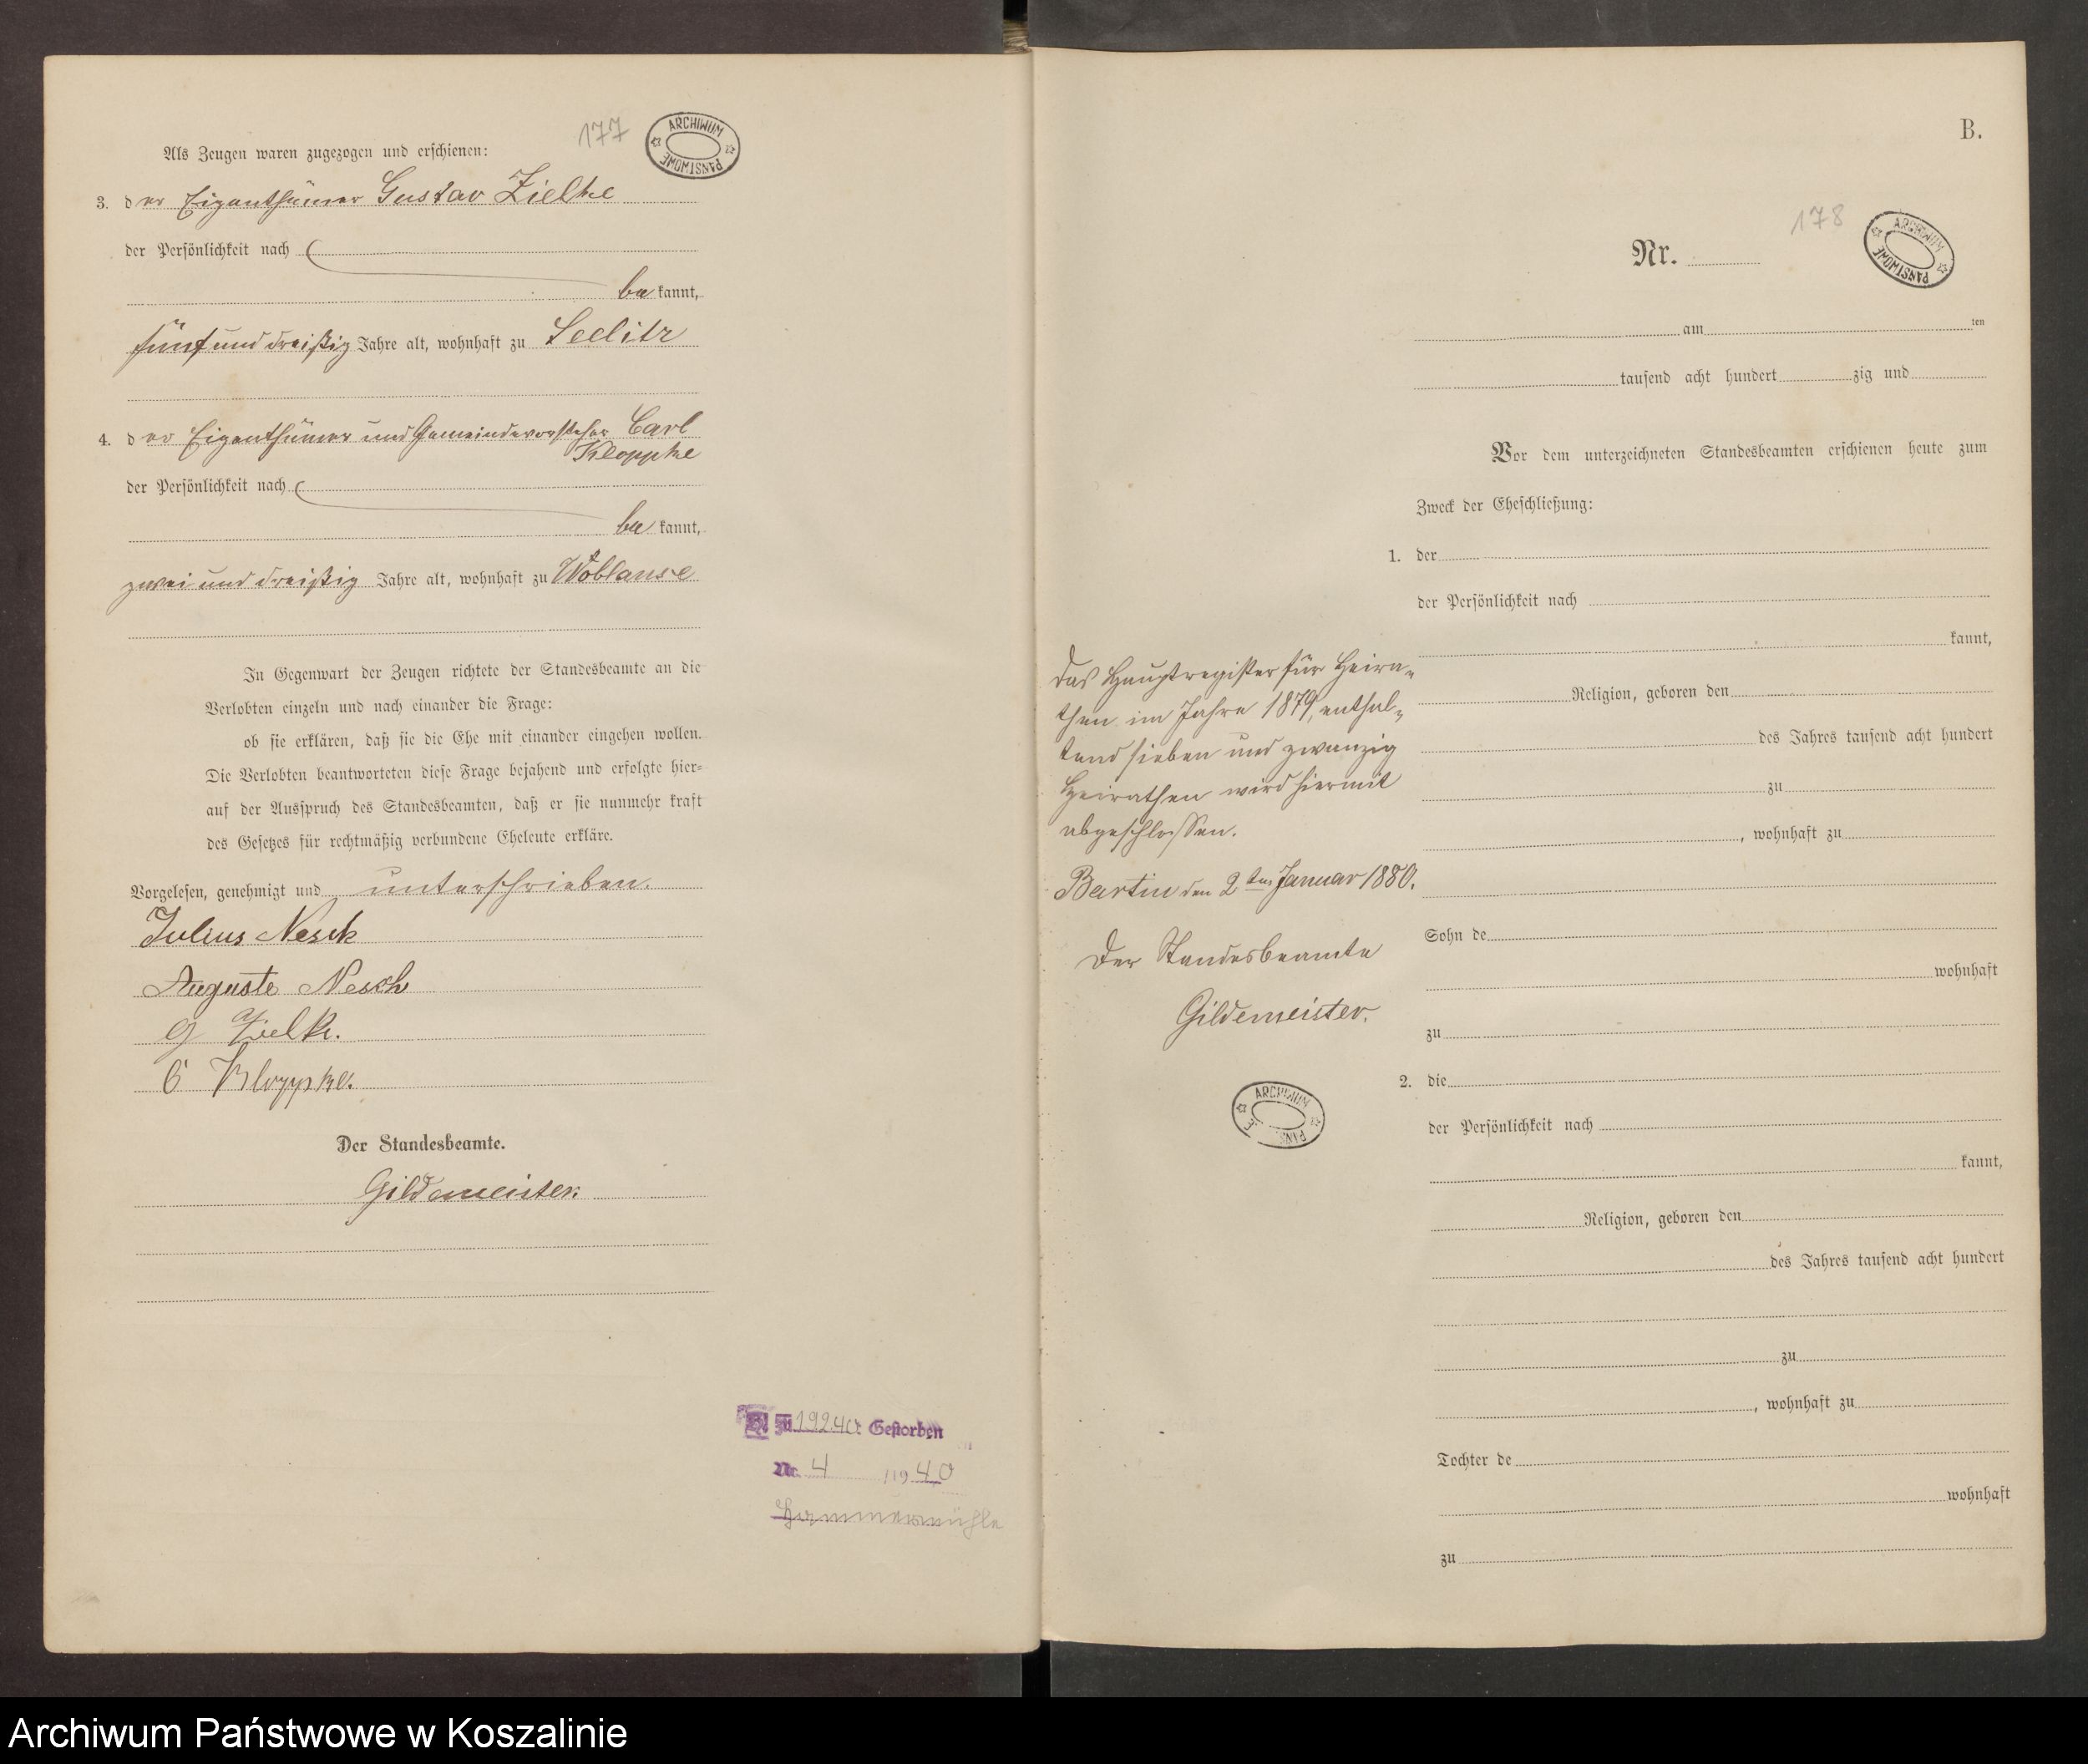 177
ARCHIWUM PAŃSTWOWE
Als Zeugen waren zugezogen und erschienen:
3. der Eigenthümer Gustav Zielke
der Persönlichkeit nach
bekannt,
fünf und dreißig Jahre alt, wohnhaft zu Seelitz
4. der Eigenthümer und Gemeindevorsteher Carl
Kloppke
der Persönlichkeit nach
bekannt,
zwei und dreißig Jahre alt, wohnhaft zu Woblanse
In Gegenwart der Zeugen richtete der Standesbeamte an die
Verlobten einzeln und nach einander die Frage:
ob sie erklären, daß sie die Ehe mit einander eingehen wollen.
Die Verlobten beantworteten diese Frage bejahend und erfolgte hier-
auf der Ausspruch des Standesbeamten, daß er sie nunmehr kraft
des Gesetzes für rechtmäßig verbundene Eheleute erkläre.
Vorgelesen, genehmigt und unterschrieben.
Julius Nesch
Auguste Nesch
G Zielke.
C Kloppke.
Der Standesbeamte.
Gildemeister.
19240: Gestorben
Nr. 4 /1940
Hammermühle
B.
178
ARCHIWUM PAŃSTWOWE
Nr.
am ten
tausend acht hundert zig und
Vor dem unterzeichneten Standesbeamten erschienen heute zum
Zweck der Eheschließung:
1. der
der Persönlichkeit nach
kannt,
Religion, geboren den
des Jahres tausend acht hundert
zu
, wohnhaft zu
Sohn de
wohnhaft
zu
2. die
der Persönlichkeit nach
kannt,
Religion, geboren den
des Jahres tausend acht hundert
zu
, wohnhaft zu
Tochter de
wohnhaft
zu
Das Hauptregister für Heira-
then im Jahre 1879, enthal-
tend sieben und zwanzig
Heirathen wird hiermit
abgeschlossen.
Bartin den 2ten Januar 1880.
Der Standesbeamte
Gildemeister.
ARCHIWUM
Archiwum Państwowe w Koszalinie